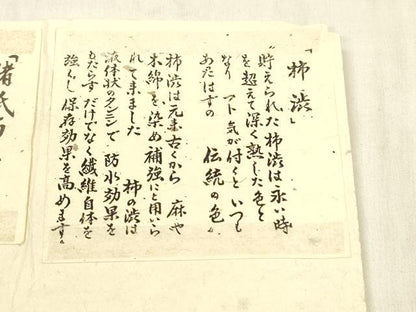 「柿渋」
〝貯えられた柿渋は永い時
を超えて深く熟した色と
なり フト気が付くといつも
あたはずの 伝統の色〟
柿渋は元来古くから 麻や
木綿を染め補強にと用いら
れて来ました 柿の渋は
液体状のタンニンで 防水効果を
もたらすだけでなく繊維自体を
強くし保存効果を高めます。